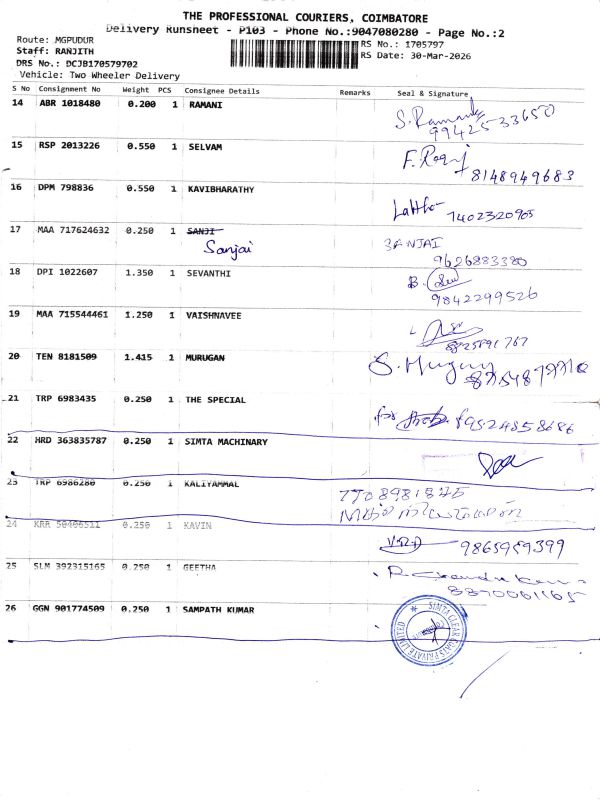 THE PROFESSIONAL COURIERS, COIMBATORE
Delivery Runsheet - P103 - Phone No.:9047080280 - Page No.:2
Route: MGPUDUR
RS No.: 1705797
Staff: RANJITH
RS Date: 30-Mar-2026
DRS No.: DCJB170579702
Vehicle: Two Wheeler Delivery
S No Consignment No Weight PCS Consignee Details Remarks Seal & Signature
14 ABR 1018480 0.200 1 RAMANI
S. Ramani
9942533650
15 RSP 2013226 0.550 1 SELVAM
8148949683
16 DPM 798836 0.550 1 KAVIBHARATHY
7402320905
17 MAA 717624632 0.250 1 SANJI
Sanjai
SANJAI
9626883380
18 DPI 1022607 1.350 1 SEVANTHI
B.
9842299526
19 MAA 715544461 1.250 1 VAISHNAVEE
8825891767
20 TEN 8181509 1.415 1 MURUGAN
S. Murugan
21 TRP 6983435 0.250 1 THE SPECIAL
for
22 HRD 363835787 0.250 1 SIMTA MACHINARY
23 TRP 6986280 0.250 1 KALIYAMMAL
24 KRR 50406511 0.250 1 KAVIN
9865959399
25 SLM 392315165 0.250 1 GEETHA
8870061165
26 GGN 901774509 0.250 1 SAMPATH KUMAR
PRIVATE LIMITED